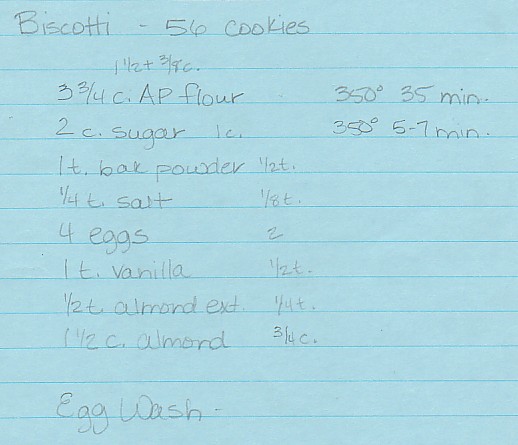 Biscotti - 56 cookies
1 1/2 + 3/8 c.
3 3/4 c. AP flour 350° 35 min.
2 c. sugar 1c. 350° 5-7 min.
1 t. bak powder 1/2 t.
1/4 t. salt 1/8 t.
4 eggs 2
1 t. vanilla 1/2 t.
1/2 t. almond ext. 1/4 t.
1 1/2 c. almond 3/4 c.
Egg Wash -